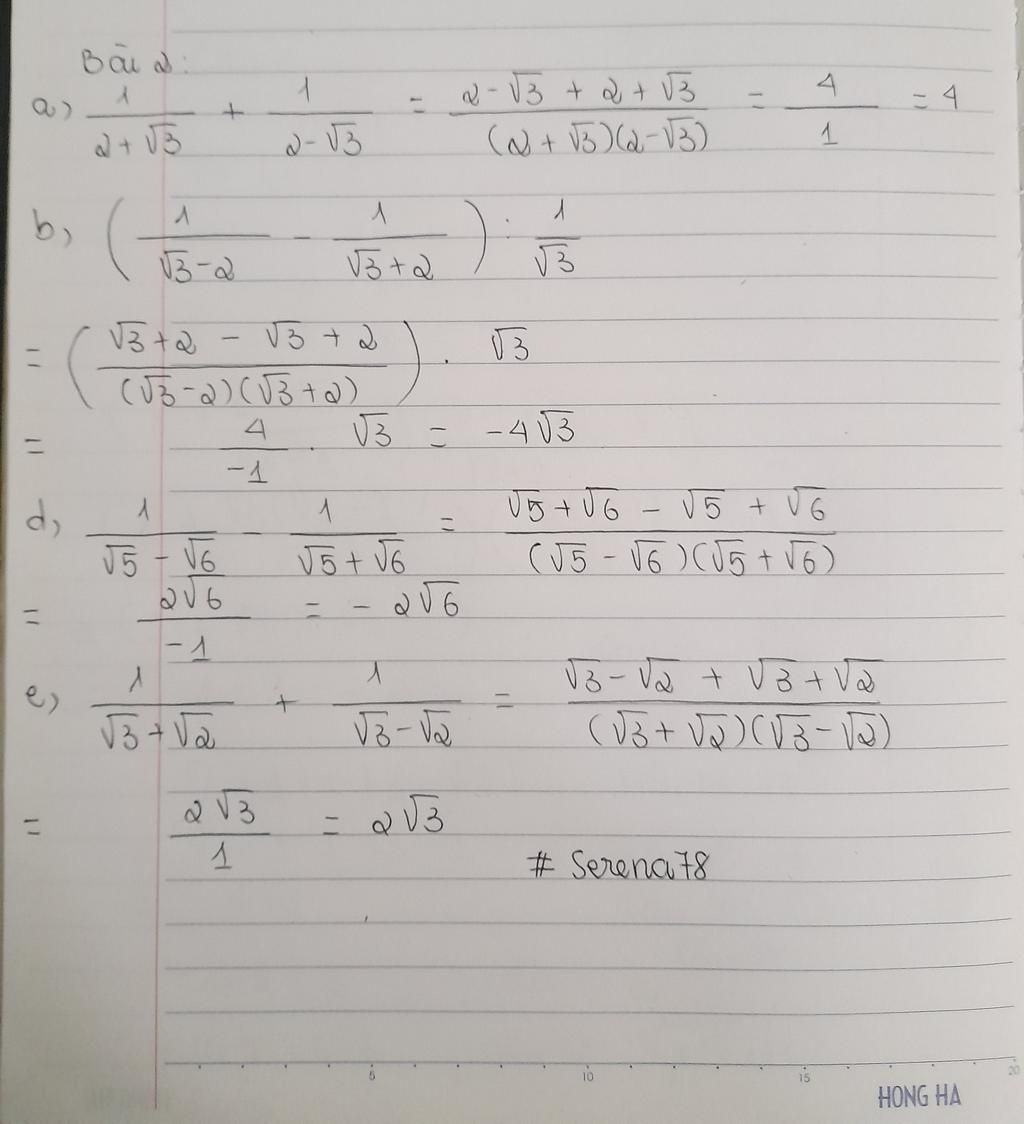 Bài 2:
a) 1/(2+√3) + 1/(2-√3) = (2-√3 + 2+√3)/((2+√3)(2-√3)) = 4/1 = 4
b) (1/(√3-2) - 1/(√3+2)) : 1/√3
= ((√3+2 - √3+2)/((√3-2)(√3+2))) . √3
= 4/-1 . √3 = -4√3
d) 1/(√5-√6) - 1/(√5+√6) = (√5+√6 - √5+√6)/((√5-√6)(√5+√6))
= 2√6/-1 = -2√6
e) 1/(√3+√2) + 1/(√3-√2) = (√3-√2 + √3+√2)/((√3+√2)(√3-√2))
= 2√3/1 = 2√3
# Serena78
5 10 15 20
HONG HA